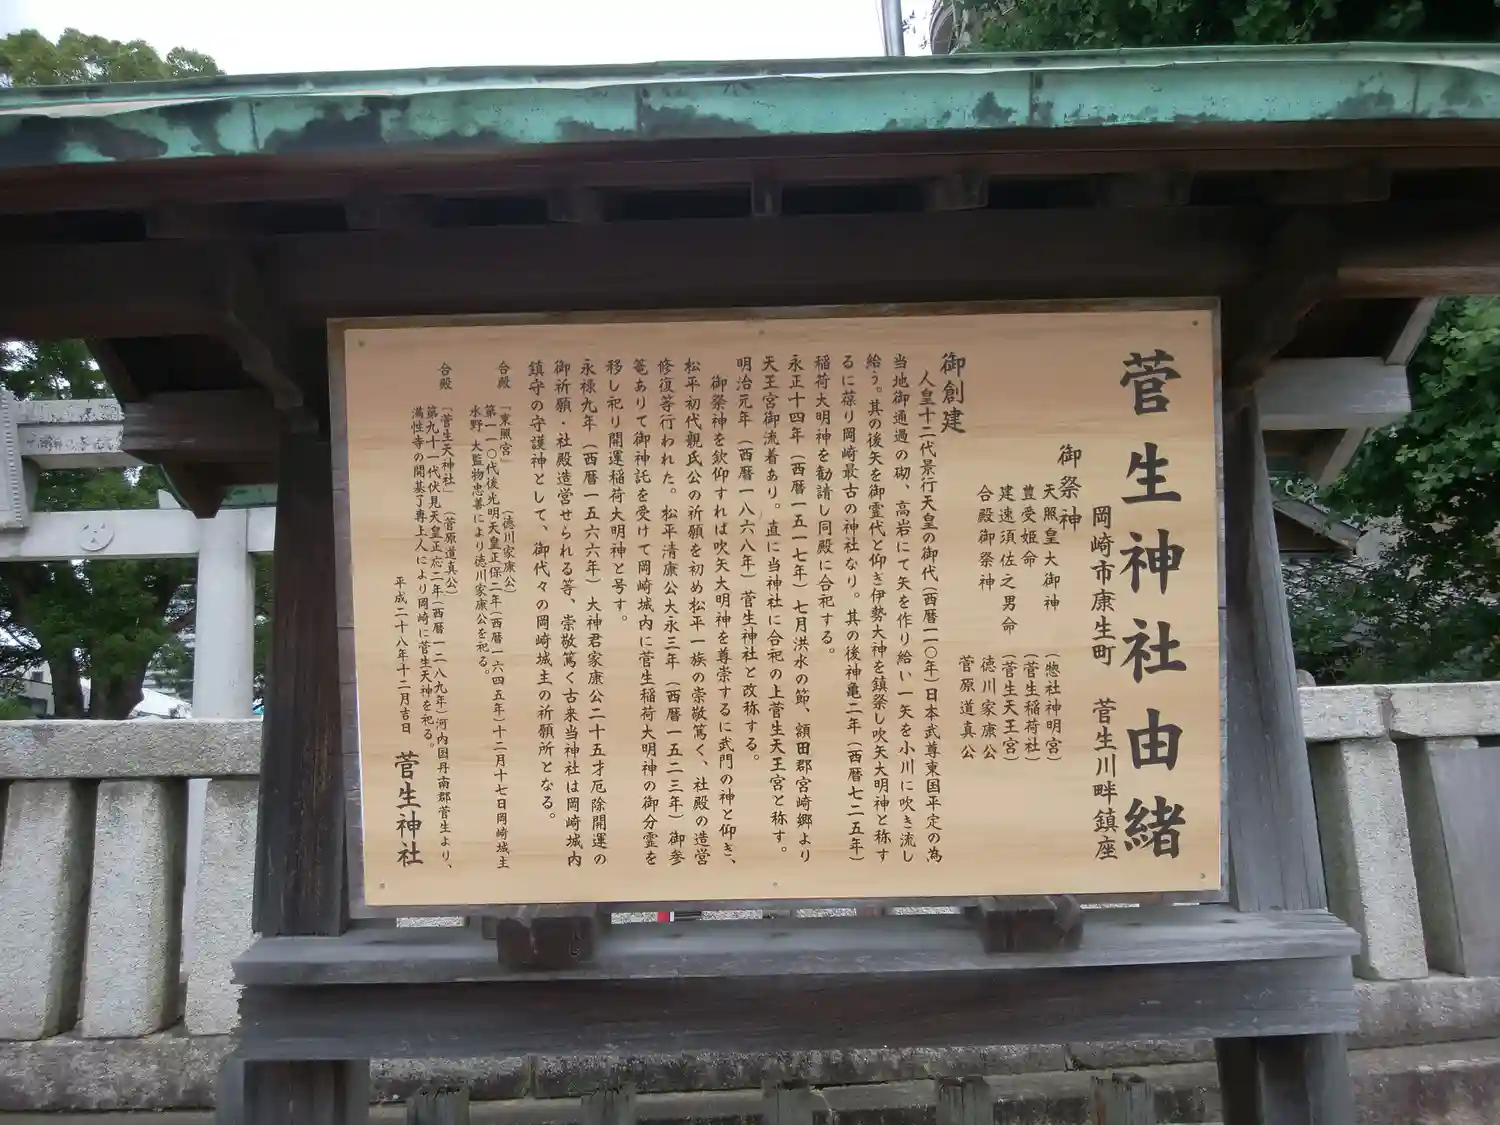 菅生神社由緒
岡崎市康生町 菅生川畔鎮座
御祭神
天照皇大御神 (惣社神明宮)
豊受姫命 (菅生稲荷社)
建速須佐之男命 (菅生天王宮)
合殿御祭神 徳川家康公
菅原道真公
御創建
人皇十二代景行天皇の御代(西暦一一〇年)日本武尊東国平定の為
当地御通過の砌、高岩にて矢を作り給い一矢を小川に吹き流し
給う。其の後矢を御霊代と仰ぎ伊勢大神を鎮祭し吹矢大明神と称す
るに葆り岡崎最古の神社なり。其の後神亀二年(西暦七二五年)
稲荷大明神を勧請し同殿に合祀する。
永正十四年(西暦一五一七年)七月洪水の節、額田郡宮崎郷より
天王宮御流着あり。直に当神社に合祀の上菅生天王宮と称す。
明治元年(西暦一八六八年)菅生神社と改称する。
御祭神を欽仰すれば吹矢大明神を尊崇するに武門の神と仰ぎ、
松平初代親氏公の祈願を初め松平一族の崇敬篤く、社殿の造営
修復等行われた。松平清康公大永三年(西暦一五二三年)御参
篭ありて御神託を受けて岡崎城内に菅生稲荷大明神の御分霊を
移し祀り開運稲荷大明神と号す。
永禄九年(西暦一五六六年)大神君家康公二十五才厄除開運の
御祈願・社殿造営せられる等、崇敬篤く古来当神社は岡崎城内
鎮守の守護神として、御代々の岡崎城主の祈願所となる。
合殿 「東照宮」 (徳川家康公)
第一一〇代後光明天皇正保二年(西暦一六四五年)十二月十七日岡崎城主
水野 大監物忠善により徳川家康公を祀る。
合殿 「菅生天神社」 (菅原道真公)
第九十一代伏見天皇正応二年(西暦一二八九年)河内国丹南郡菅生より、
満性寺の開基了専上人により岡崎に菅生天神を祀る。
平成二十八年十二月吉日 菅生神社